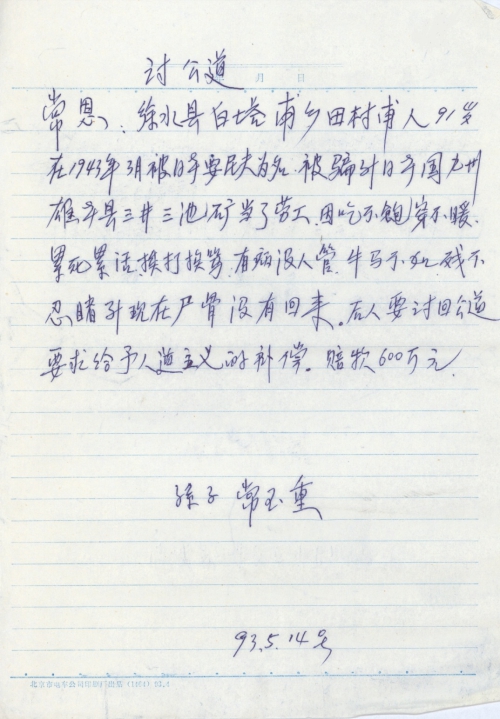 讨公道
月 日
常恩：徐水县白塔甫乡田村甫人91岁
在1943年3月被日本要民夫为名.被骗到日本国九州
雄本县三井三池矿当了劳工.因吃不饱穿不暖.
累死累活挨打挨骂.有病没人管.牛马不如.残不
忍睹到现在尸骨没有回来。后人要讨回公道
要求给予人道主义的补偿。赔款600万元.
孙子 常玉重
93.5.14号